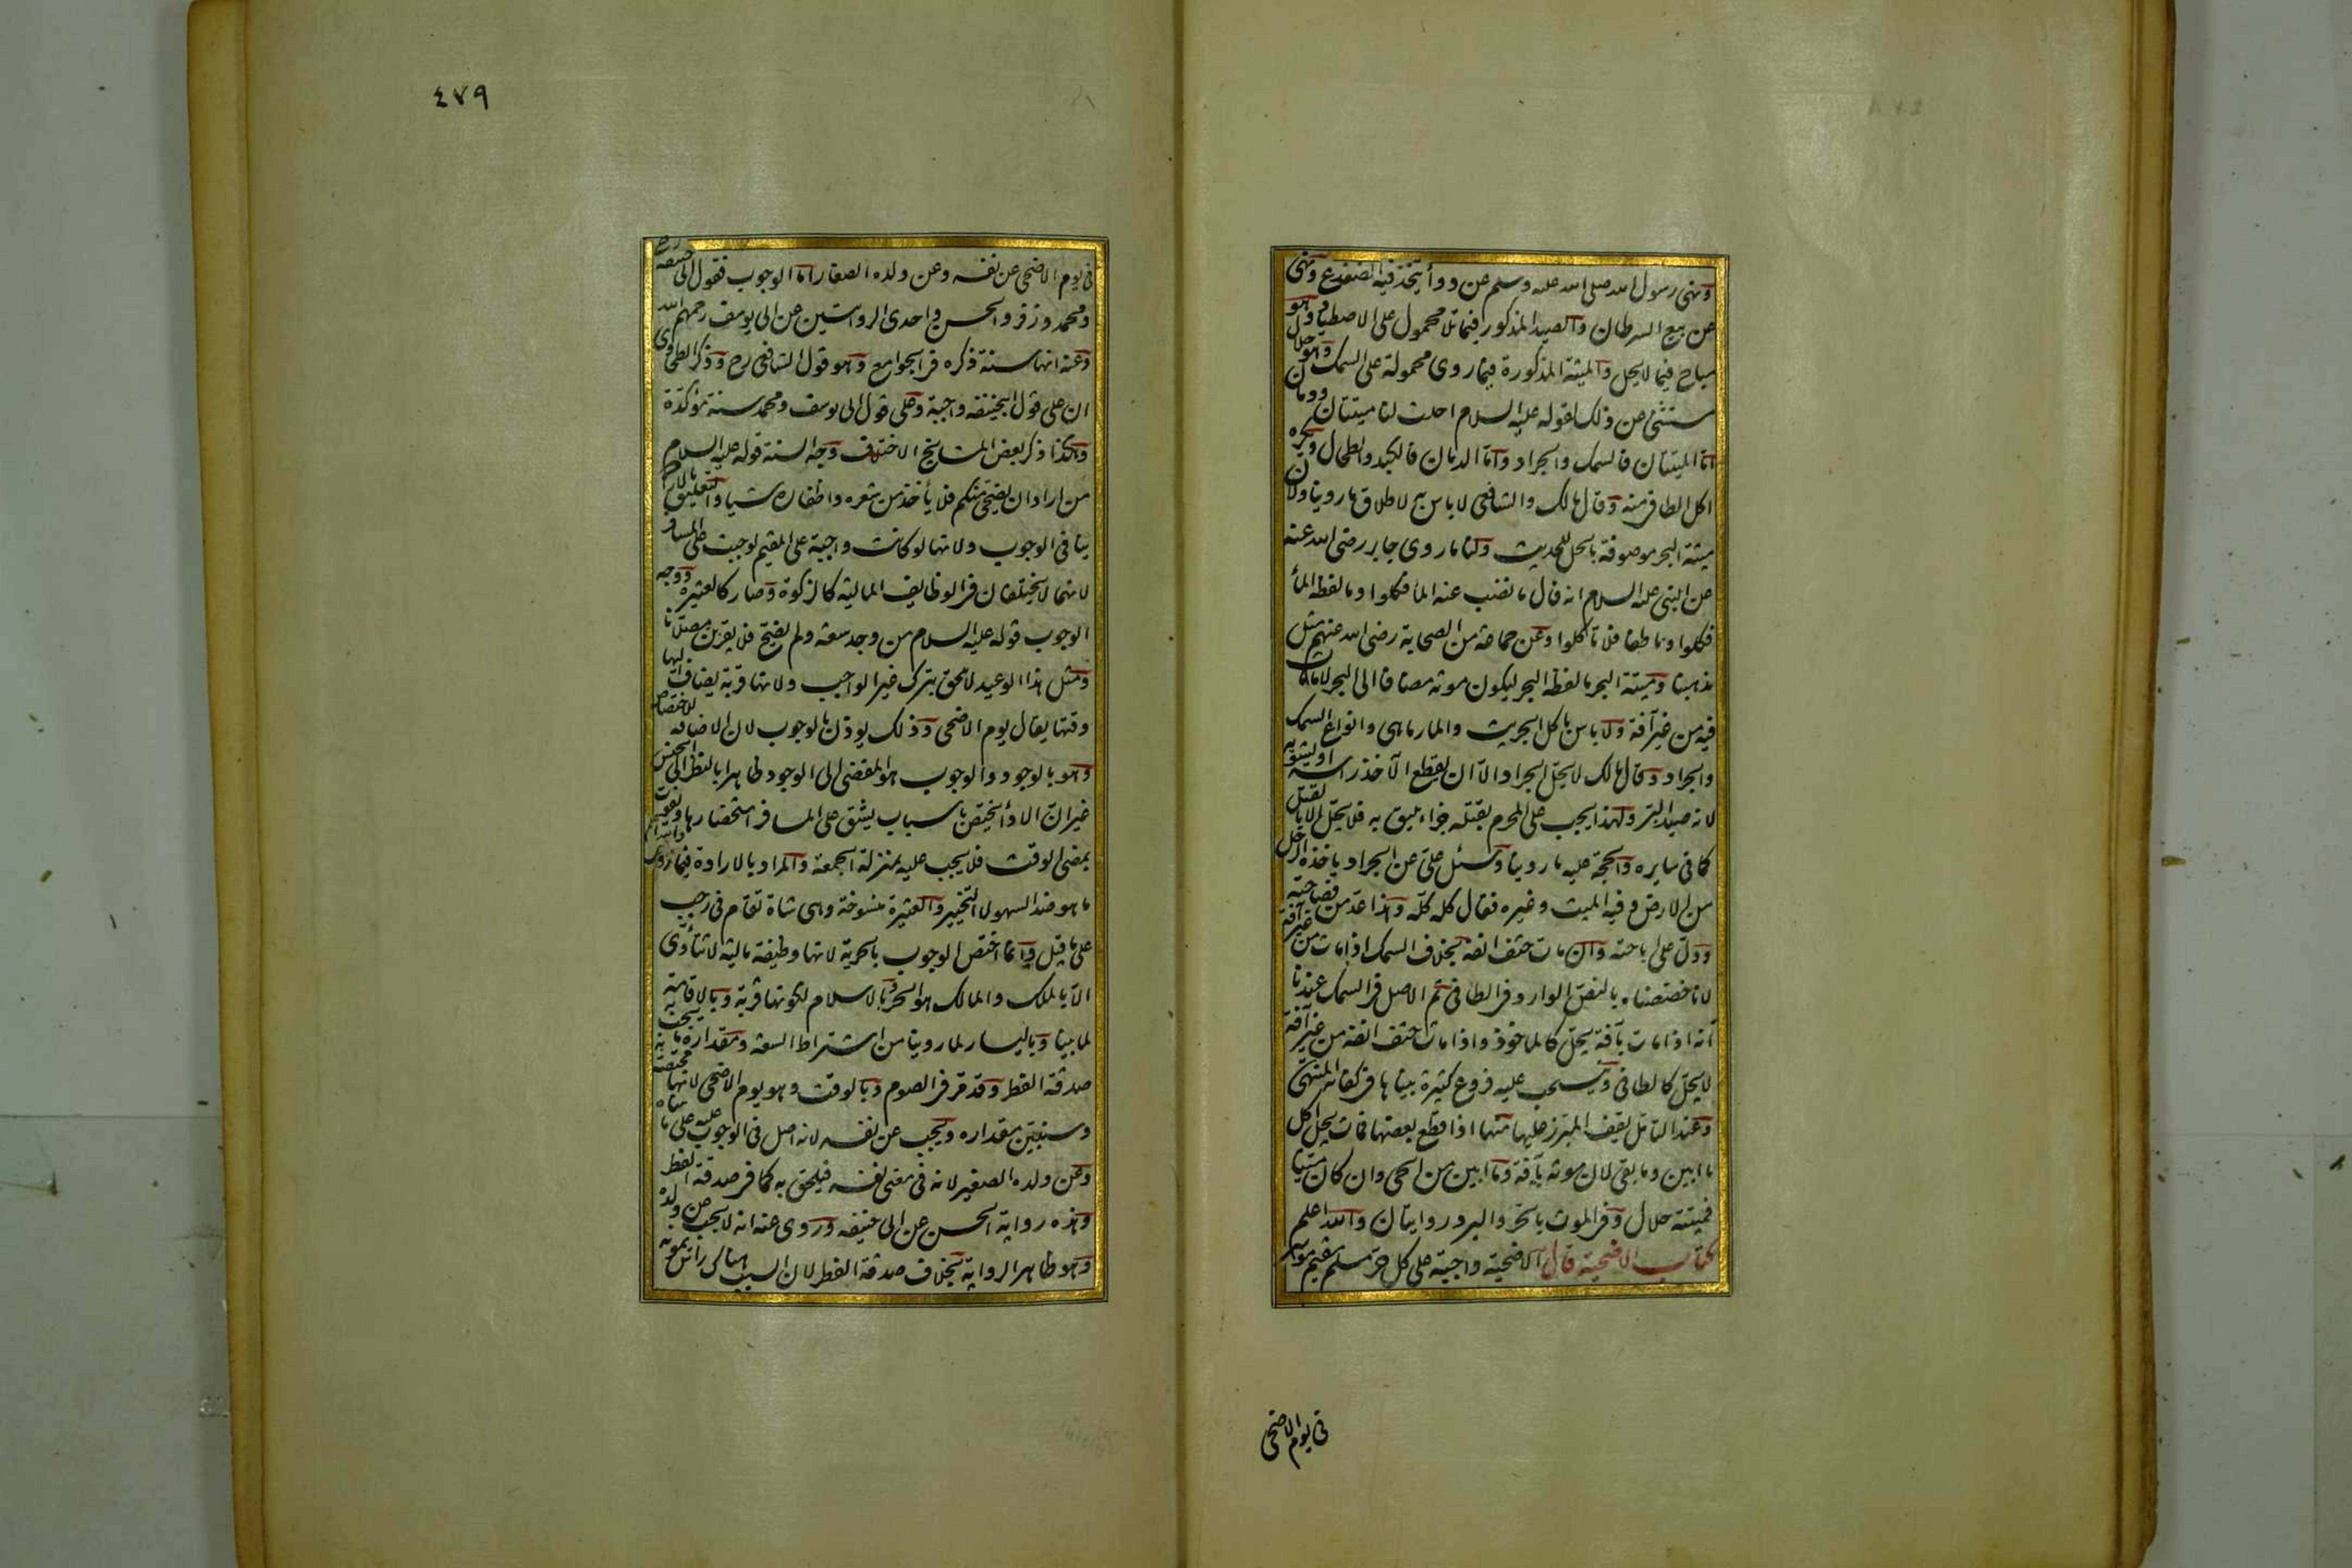 ونهى رسول الله صلى الله عليه وسلم عن دواء يتخذ فيه الضفدع ونهى
عن بيع السرطان والصيد المذكور فيما تلا محمول على الاصطياد وهو
مباح فيما لا يحل والميتة المذكورة فيما روى محمولة على السمك وهو حلال
مستثنى من ذلك لقوله عليه السلام احلت لنا ميتتان ودمان
اما الميتتان فالسمك والجراد واما الدمان فالكبد والطحال ويكره
اكل الطافى منه وقال مالك والشافعى لا باس به لاطلاق ما روينا ولان
ميتة البحر موصوفة بالحل للحديث ولنا ما روى جابر رضى الله عنه
عن النبى عليه السلام انه قال ما نضب عنه الماء فكلوا وما لفظه الماء
فكلوا وما طفا فلا تأكلوا وعن جماعة من الصحابة رضى الله عنهم مثل
مذهبنا وميتة البحر ما لفظه البحر ليكون موته مضافا الى البحر لا ما مات
فيه من غير آفة ولا باس باكل الجريث والمارماهى وانواع السمك
والجراد وقال مالك لا يحل الجراد الا ان يقطع الآخذ راسه او يشويه
لانه صيد البر ولهذا يجب على المحرم بقتله جزاء يليق به فلا يحل الا بالقتل
كما فى سايره والحجة عليه ما روينا وسئل على عن الجراد يأخذه الرجل
من الارض وفيه الميت وغيره فقال كله كله وهذا عد من فصاحته
ودل على اباحته وان مات حتف انفه بخلاف السمك اذا مات من غير آفة
لانا خصصناه بالنص الوارد فى الطافى ثم الاصل فى السمك عندنا
انه اذا مات بآفة يحل كالماخوذ واذا مات حتف انفه من غير آفة
لا يحل كالطافى وينسحب عليه فروع كثيرة بيناها فى كفاية المنتهى
وعند التأمل يقف المبرز عليها منها اذا قطع بعضها فمات يحل اكل
ما ابين وما بقى لان موته بآفة وما ابين من الحى وان كان ميتا
فميتته حلال وفى الموت بالحر والبرد روايتان والله اعلم
كتاب الاضحية قال الاضحية واجبة على كل حر مسلم مقيم موسر
فى يوم الاضحى
٤٧٩
فى يوم الاضحى عن نفسه وعن ولده الصغار اما الوجوب فقول ابى حنيفة رح
ومحمد وزفر والحسن واحدى الروايتين عن ابى يوسف رحمهم الله
وعنه انها سنة ذكره فى الجوامع وهو قول الشافعى رح وذكر الطحاوى
ان على قول ابى حنيفه واجبة وعلى قول ابى يوسف ومحمد سنة مؤكدة
وهكذا ذكر بعض المشايخ الاختلاف وجه السنة قوله عليه السلام
من اراد ان يضحى منكم فلا يأخذ من شعره واظفاره شيا والتعليق بالارادة
ينافى الوجوب ولانها لو كانت واجبة على المقيم لوجبت على المسافر
لانهما لا يختلفان فى الوظايف المالية كالزكوة وصار كالعتيرة ووجه
الوجوب قوله عليه السلام من وجد سعة ولم يضح فلا يقربن مصلانا
ومثل هذا الوعيد لا يلحق بترك غير الواجب ولانها قربة يضاف اليها
وقتها يقال يوم الاضحى وذلك يوذن بالوجوب لان الاضافه للاختصاص
وهو بالوجود والوجوب هو المفضى الى الوجود ظاهرا بالنظر الى الجنس
غير ان الاداء يختص باسباب يشق على المسافر استحضارها ويفوت
بمضى الوقت فلا يجب عليه بمنزلة الجمعة والمراد بالارادة فيما روى والله اعلم
ما هو ضد السهو لا التخيير والعتيرة منسوخة وهى شاة تقام فى رجب
على ما قيل وانما اختص الوجوب بالحرية لانها وظيفة مالية لا تتأدى
الا بالملك والمالك هو الحر وبالاسلام لكونها قربة وبالاقامة
لما بينا وباليسار لما روينا من اشتراط السعة ومقداره ما يجب به
صدقة الفطر وقد مر فى الصوم وبالوقت وهو يوم الاضحى لانها مختصة به
وسنبين مقداره ويجب عن نفسه لانه اصل فى الوجوب عليه على ما بيناه
وعن ولده الصغير لانه فى معنى نفسه فيلحق به كما فى صدقة الفطر
وهذه رواية الحسن عن ابى حنيفه وروى عنه انه لا يجب عن ولده
وهو ظاهر الرواية بخلاف صدقة الفطر لان السبب هناك راس يمونه